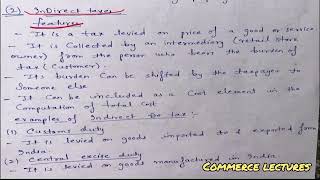 (2) InDirect taxes
features
- It is a tax levied on price of a good or service
- It is Collected by an intermediary (retail store
owner) from the person who bears the burden of
tax (Customer).
- Its burden Can be shifted by the taxpayer to
Someone else
- It Can be included as a Cost element in the
Computation of total Cost
examples of Indirect tax:-
(1) Customs duty
- It is levied on goods imported to & exported from
India.
(2) Central excise duty
- It is levied on goods manufactured in India
COMMERCE LECTURES